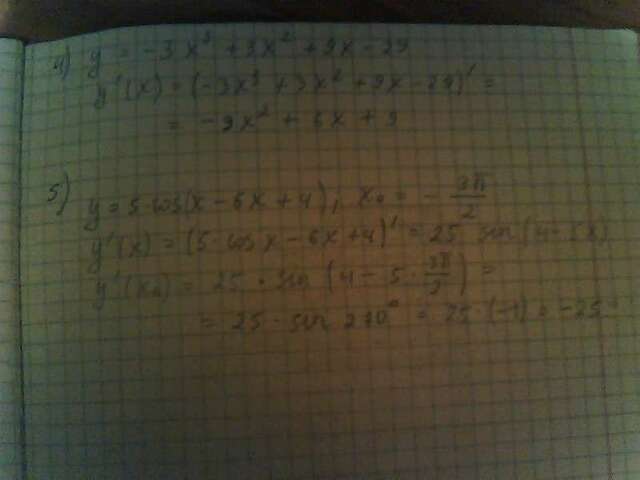 4) y = -3x³ + 3x² + 9x - 29
y'(x) = (-3x³ + 3x² + 9x - 29)' =
= -9x² + 6x + 9
5) y = 5 cos(x - 6x + 4), x₀ = - 3π/2
y'(x) = (5 · cos x - 6x + 4)' = 25 sin(4 - 5x)
y'(x₀) = 25 · sin (4 - 5 · 3π/2) =
= 25 · sin 270° = 25 · (-1) = -25